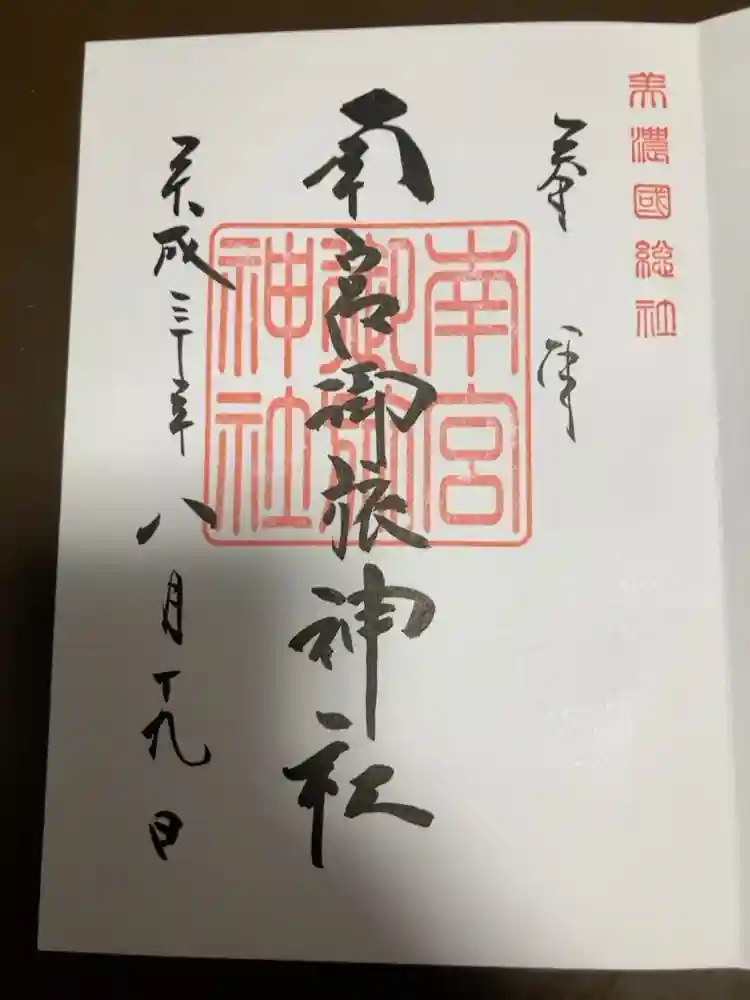 美濃國総社
奉拝
南宮御旅神社
南宮
御旅
神社
平成三十年八月十九日